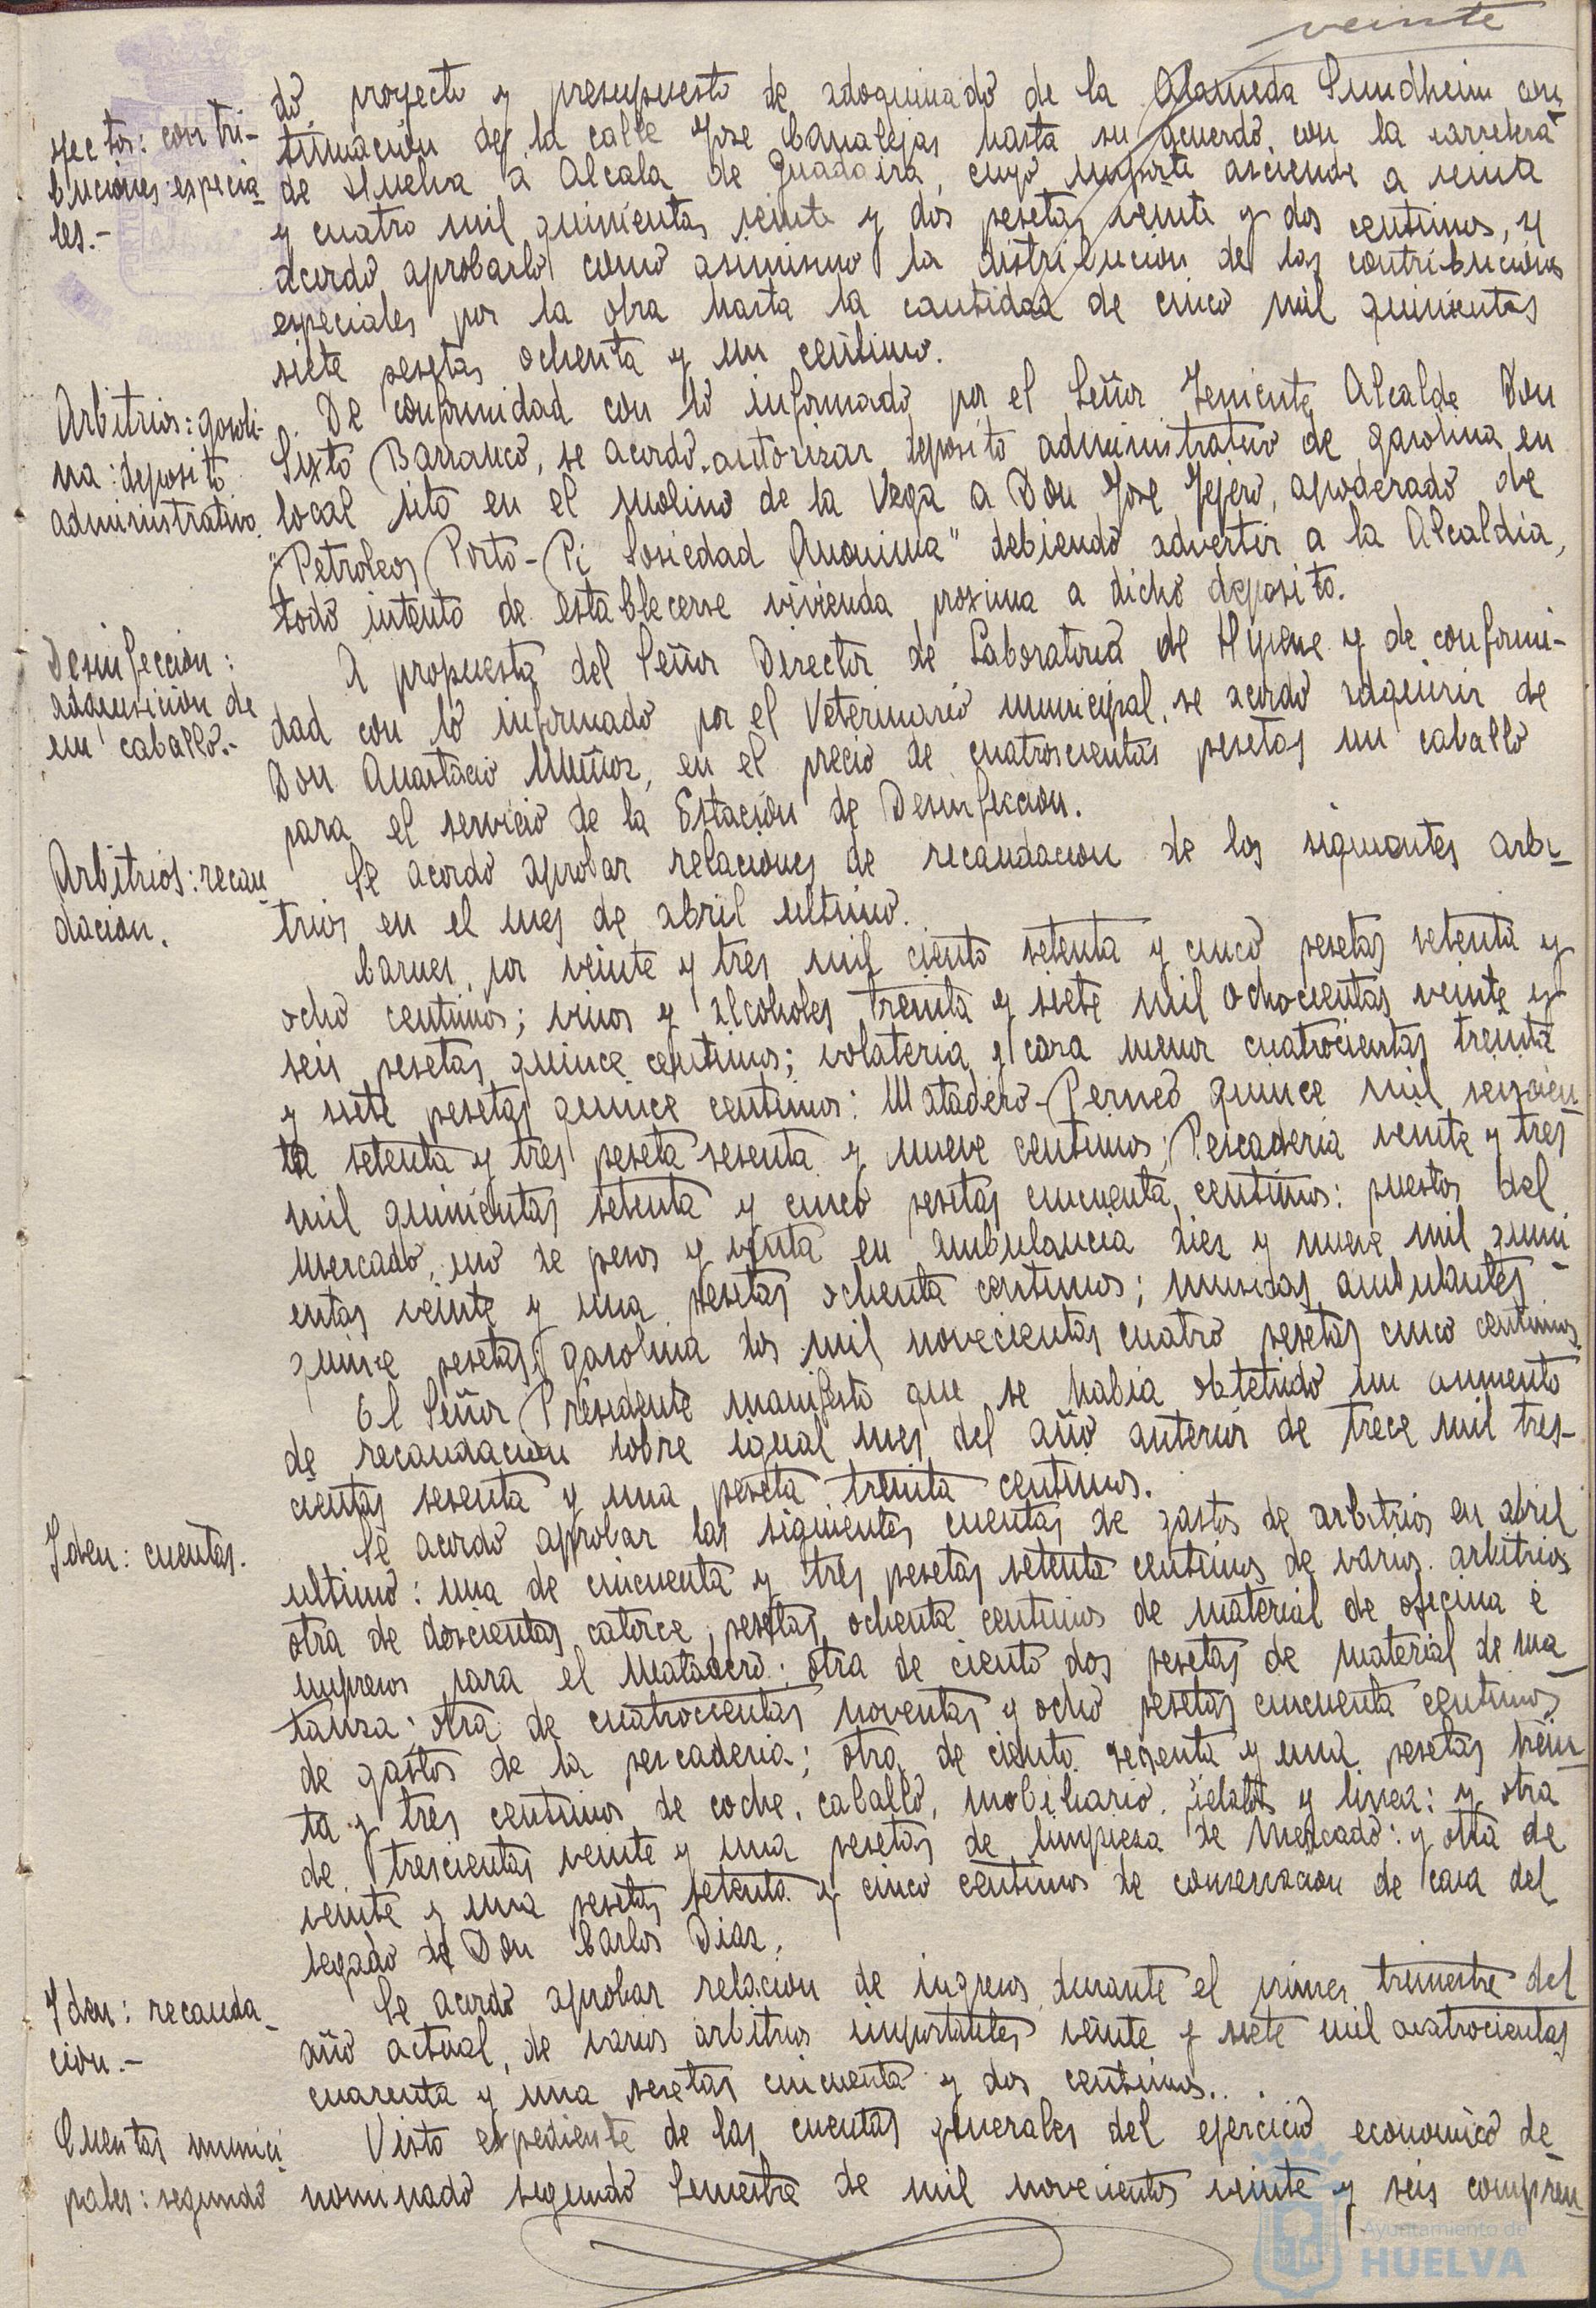 veinte
do, proyecto y presupuesto de adoquinado de la Alameda Sundheim con
yectos: contri-
tinuación de la calle Jose Canalejas hasta su acuerdo con la carretera
buciones especia
de Huelva a Alcala de Guadaira, cuyo importe asciende a veinte
les.-
y cuatro mil quinientas veinte y dos pesetas veinte y dos centimos, y
acordó aprobarlo como asimismo la distribucion de las contribuciones
especiales por la obra hasta la cantidad de cinco mil quinientas
siete pesetas ochenta y un centimo.
Arbitrios: gasoli-
na: deposito
administrativo.
De conformidad con lo informado por el Señor Teniente Alcalde Don
Sixto Barranco, se acordó autorizar deposito administrativo de gasolina en
local sito en el molino de la Vega a Don Jose Tejero, apoderado de
"Petroleos Porto-Pi Sociedad Anonima" debiendo advertir a la Alcaldia,
todo intento de establecerse vivienda proxima a dicho deposito.
Desinfeccion:
adquisicion de
un caballo.-
A propuesta del Señor Director de Laboratorio de Hygiene y de conformi-
dad con lo informado por el Veterinario municipal, se acordo adquirir de
Don Anastacio Muñoz, en el precio de cuatroscientas pesetas un caballo
para el servicio de la Estación de Desinfeccion.
Arbitrios: recau
dacion.
Se acordó aprobar relaciones de recaudacion de los siguientes arbi-
trios en el mes de abril ultimo.
Carnes, por veinte y tres mil ciento setenta y cinco pesetas setenta y
ocho centimos; vinos y alcoholes treinta y siete mil ochocientas veinte y
seis pesetas quince centimos; volateria y caza menor cuatrocientas treinta
y siete pesetas quince centimos: Matadero-Perneo quince mil seiscien
ta setenta y tres peseta sesenta y nueve centimos; Pescaderia veinte y tres
mil quinientas setenta y cinco pesetas cincuenta centimos: puestos del
mercado, uso de pesos y venta en ambulancia diez y nueve mil quini
entas veinte y una pesetas ochenta centimos; musicas ambulantes
quince pesetas; gasolina dos mil novecientas cuatro pesetas cinco centimos.
El Señor Presidente manifesto que se habia obtenido un aumento
de recaudacion sobre igual mes del año anterior de trece mil tres-
cientas sesenta y una peseta treinta centimos.
Iden: cuentas.
Se acordo aprobar las siguientes cuentas de gastos de arbitrios en abril
ultimo: una de cincuenta y tres pesetas setenta centimos de varios arbitrios
otra de doscientas catorce pesetas ochenta centimos de material de oficina e
impresos para el Matadero; otra de ciento dos pesetas de material de ma
tanza; otra de cuatrocientas noventas y ocho pesetas cincuenta centimos
de gastos de la pescaderia; otra de ciento sesenta y una pesetas trein
ta y tres centimos de coche, caballo, mobiliario, y linea: y otra
de trescientas veinte y una pesetas de limpieza de Mercado: y otra de
veinte y una pesetas setenta y cinco centimos de conservacion de casa del
legado de Don Carlos Diaz.
Iden: recauda
cion.-
Se acordo aprobar relacion de ingresos, durante el primer trimestre del
año actual, de varios arbitrios importantes veinte y siete mil cuatrocientas
cuarenta y una pesetas cincuenta y dos centimos.
Cuentas munici
pales: segundo
Visto expediente de las cuentas generales del ejercicio economico de
nominado segundo Semestre de mil novecientos veinte y seis compren
Ayuntamiento de
HUELVA